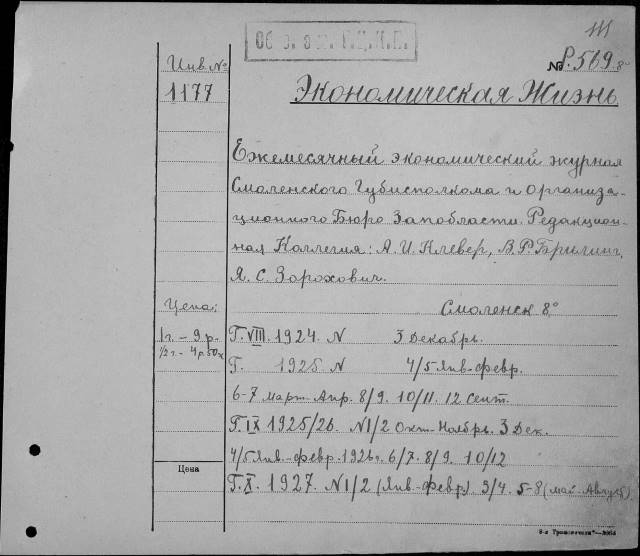 № Р. 569 8°
Инв №
1177
Экономическая Жизнь
Ежемесячный экономический журнал
Смоленского Губисполкома и Организа-
ционного Бюро Запобласти. Редакцион-
ная Коллегия: А. И. Клевер, В. Р. Брилинг,
Я. С. Зорохович.
Смоленск 8°
Цена:
1 г. - 9 р.
1/2 г. - 4 р. 50 к
Г. VIII. 1924. N 3 Декабрь.
Г. 1925. N 4/5 Янв-февр.
6-7 март-Апр. 8/9. 10/11. 12 Сент.
Г. IX 1925/26. N 1/2 Окт-Ноябрь. 3 Дек.
4/5 Янв.-февр. 1926 г. 6/7. 8/9. 10/12
Цена
Г. X. 1927. N 1/2 (Янв-февр). 3/4. 5-8 (май-Август).